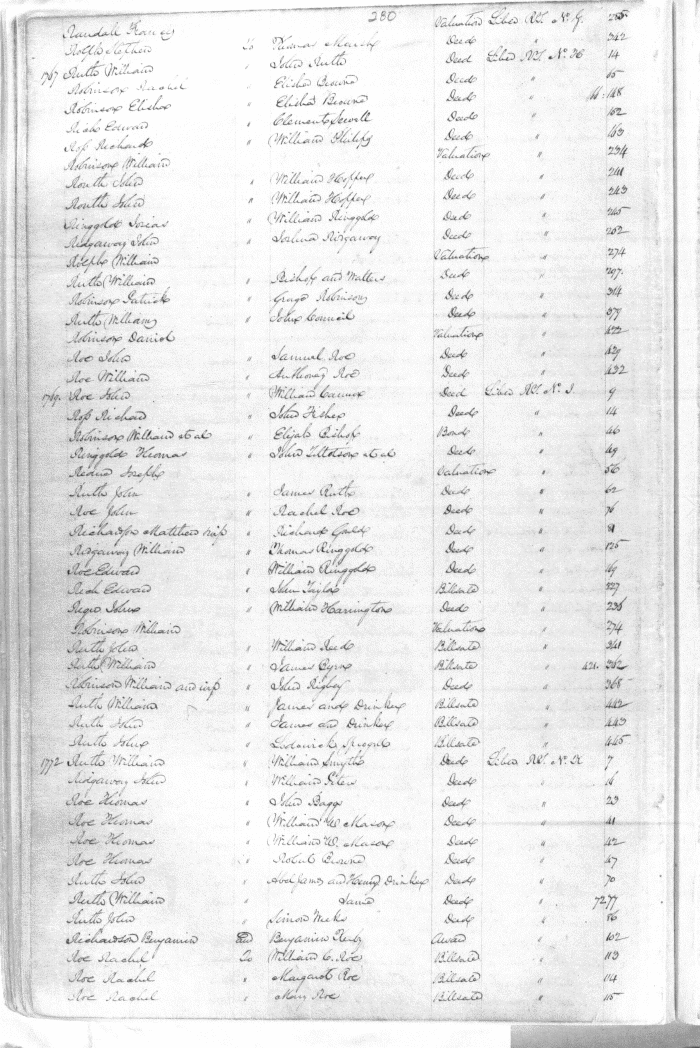 280
Randall Valuation Liber RT. No. G. 235
Rolph Stephen To Thomas Marsh Deed " 242
1767 Ruth William " John Ruth Deed Liber RT. No. H 14
Robinson Rachel " Elisha Browne Deed " 65
Robinson Elisha " Elisha Browne Deed " 148
Edward " Clement Sewell Deed " 162
Roſs Richard " William Philips Deed " 163
Robinson William Valuation " 234
Routh John " William Hopper Deed " 241
Routh John " William Hopper Deed " 243
Ringgold Josias " William Ringgold Deed " 245
Ridgaway John " Joshua Ridgaway Deed " 252
Rolph William Valuation " 274
Ruth William " Bishop and Walters Deed " 297
Robinson Patrick " Robinson Deed " 314
Ruth William " John Council Deed " 379
Robinson Daniel Valuation " 422
Roe John " Samuel Roe Deed " 429
Roe William " Anthony Roe Deed " 432
1769 Roe John " William Deed Liber RT. No. I. 9
Roſs Richard " John Fisher Deed " 14
Robinson William et al " Elijah Bishop Bond " 46
Ringgold Thomas " John Tillotson et al Deed " 49
Joseph Valuation " 56
Ruth John " James Ruth Deed " 62
Roe John " Rachel Roe Deed " 76
Richardson " Richard Deed " 81
Ridgaway William " Thomas Ringgold Deed " 125
Roe Edward " William Ringgold Deed " 119
Edward " John Taylor Billsale " 227
John " William Harrington Deed " 236
Robinson William Valuation " 274
Ruth John " William Reed Billsale " 341
Ruth William " James Byrn Billsale " 421. 362
Robinson William and wife " John Rigby Deed " 368
Ruth William " James and Drinker Billsale " 442
Ruth John " James and Drinker Billsale " 443
Ruth John " Lodowick Billsale " 445
1772 Ruth William " William Smyth Deed Liber RT. No. K 7
Ridgaway John " William Deed " 16
Roe Thomas " John Baggs Deed " 23
Roe Thomas " William W. Mason Deed " 41
Roe Thomas " William W. Mason Deed " 42
Roe Thomas " Robert Browne Deed " 47
Ruth John " Abel James and Henry Drinker Deed " 70
Ruth William " Same Deed " 7277
Ruth John " Simon Deed " 86
Richardson Benjamin And Benjamin Award " 102
Roe Rachel To William C. Roe Billsale " 113
Roe Rachel " Margaret Roe Billsale " 114
Roe Rachel " Mary Roe Billsale " 115